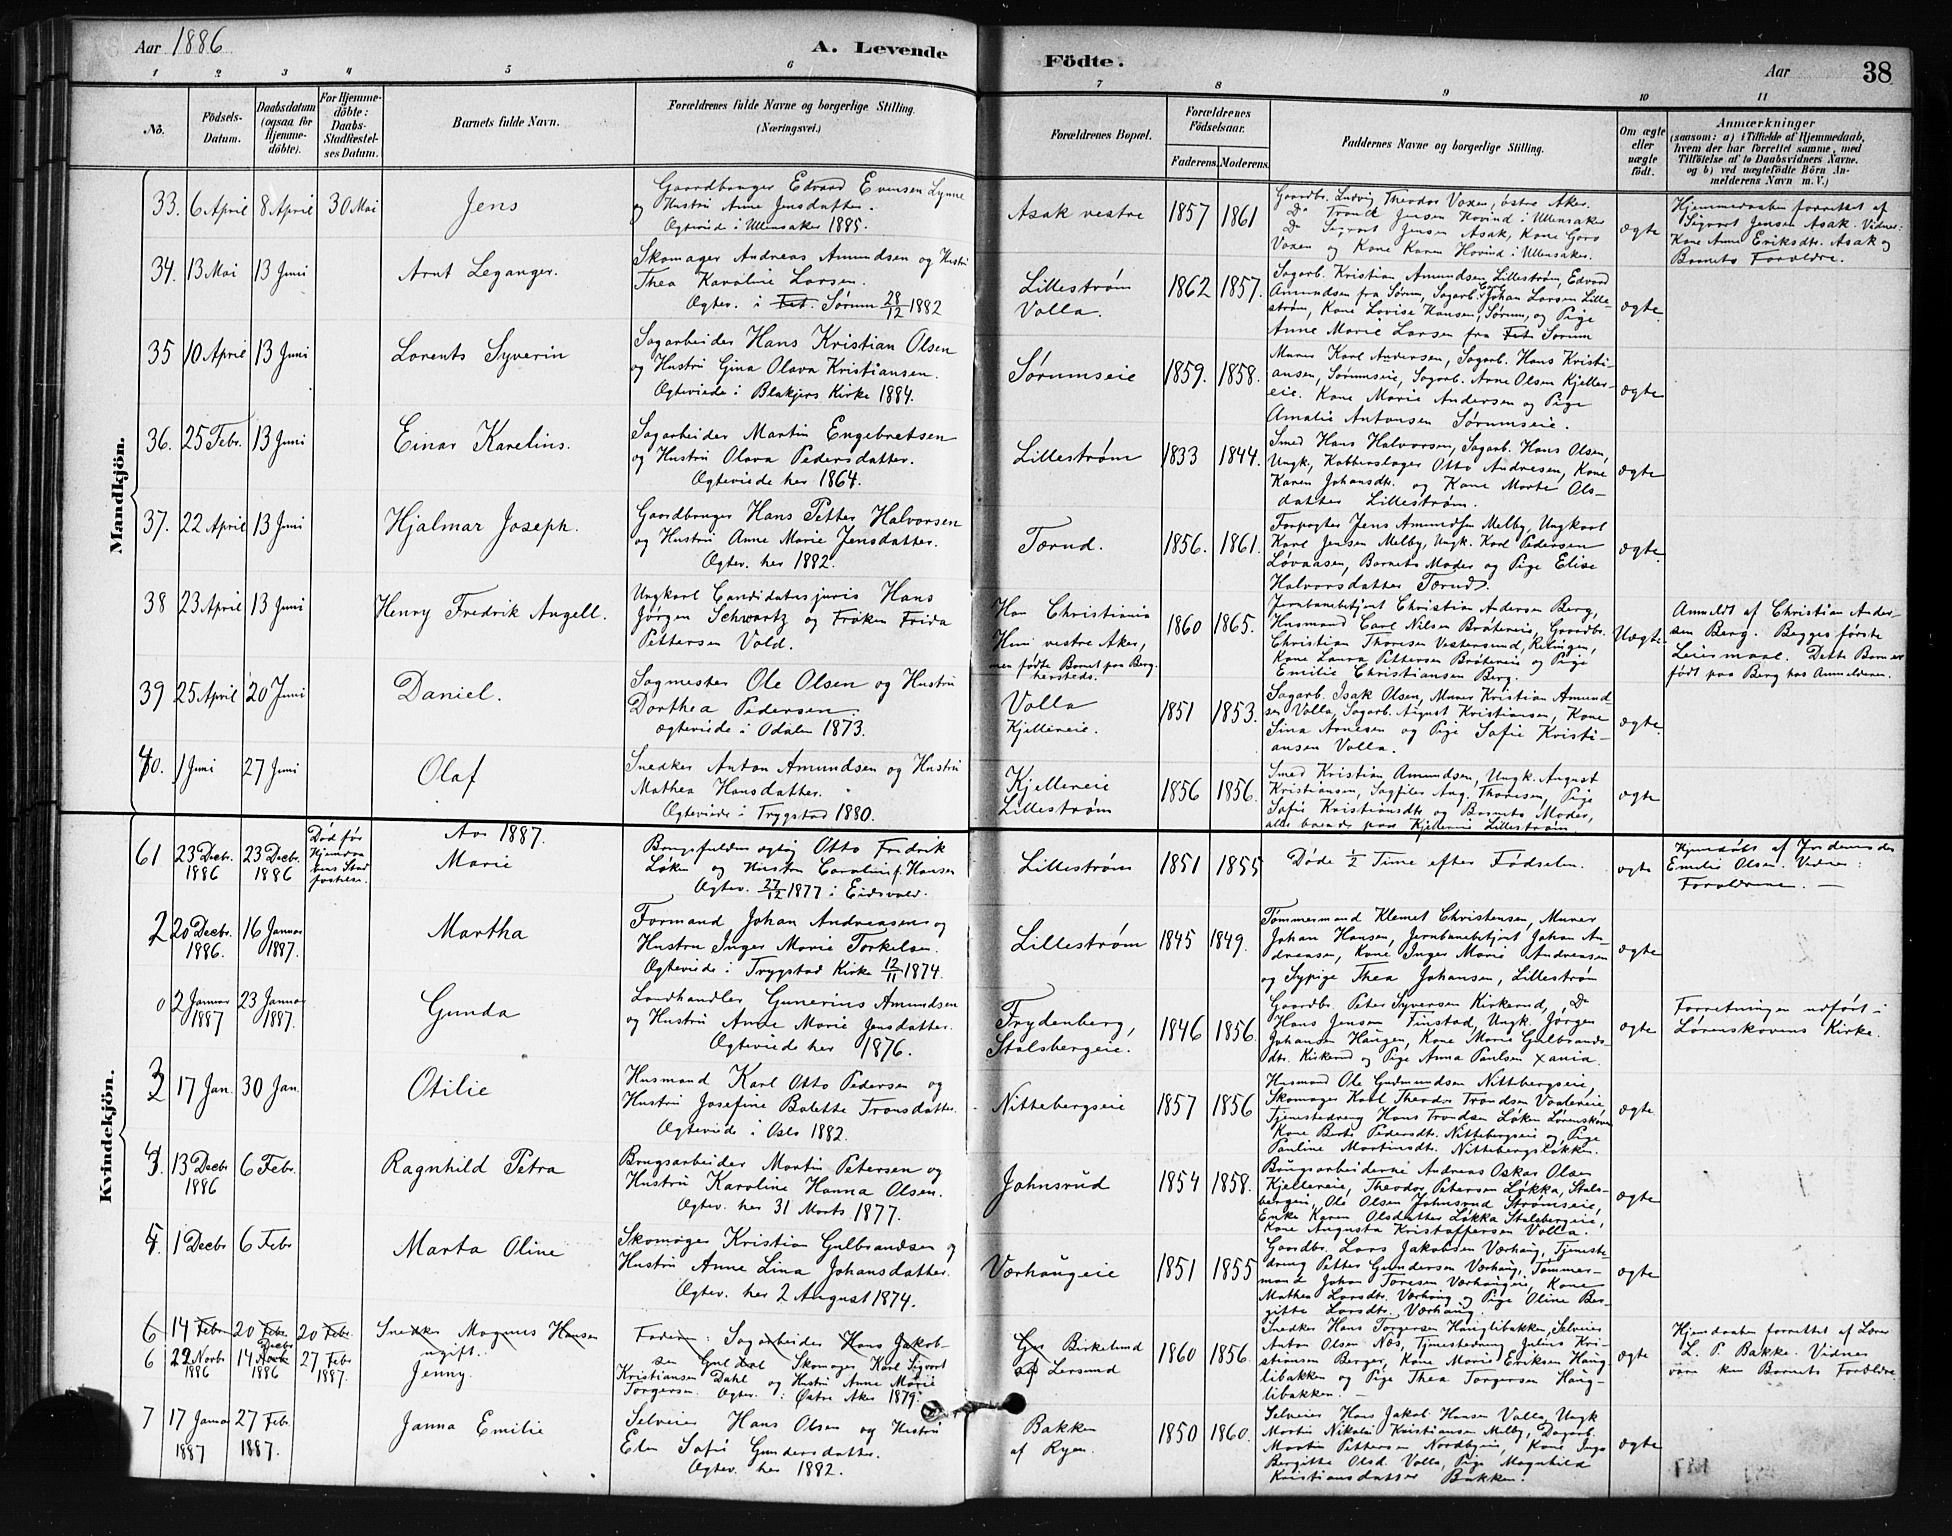 Aar 1886
A. Levende
Födte.
Aar
38
1 2 3 4 5 6 7 8 9 10 11
No.
Födsels-
Datum.
Daabsdatum
(ogsaa for
Hjemme-
döbte).
For Hjemme-
döbte:
Daabs-
Stadfæstel-
ses Datum.
Barnets fulde Navn.
Forældrenes fulde Navne og borgerlige Stilling.
(Næringsvei.)
Forældrenes Bopæl.
Forældrenes
Födselsaar.
Faderens.
Moderens.
Faddernes Navne og borgerlige Stilling.
Om ægte
eller
uægte
födt.
Anmærkninger
(saasom: a) i Tilfælde af Hjemmedaab,
hvem der har forrettet samme, med
Tilföielse af to Daabsvidners Navne.
og b) ved uægtefödte Börn An-
melderens Navn m. V.)
Mandkjön.
33. 6 April 8 April 30 Mai
Jens
Gaardbruger Edvard Evensen Lynne
og Hustru Anne Jensdatter.
Ægteviede i Ullensaker 1885.
Asak vestre
1857 1861
Gaardbr. Ludvig Theodor Voxen, østre Aker.
Do Trond Jensen Hovind i Ullensaker
Do Sigvart Jensen Asak, Kone
Voxen og Kone Karen Hovind i Ullensaker.
ægte
Hjemmedaaben forrettet af
Sigvart Jensen Asak. Vidner:
Kone Anne Eriksdtr. Asak og
Barnets Forældre.
34. 13 Mai 13 Juni
Arnt Leganger.
Skomager Andreas Amundsen og Hustru
Thea Karoline Larsen.
Ægtev. i Fet. Sørum 28/12 1882
Lillestrøm
Volla.
1862 1857.
Sagarb. Kristian Amundsen, Lillestrøm, Edvard
Amundsen fra Sørum, Sagarb. Johan Larsen Lille-
strøm, Kone Lovise Hansen, Sørum, og Pige
Anne Marie Larsen fra Fet Sørum
ægte.
35 10 April 13 Juni
Lorents Syverin
Sagarbeider Hans Kristian Olsen
og Hustru Gina Olava Kristiansen.
Ægteviede i Blakjers Kirke 1884.
Sørumseie
1859. 1858.
Murer Karl Andersen, Sagarb. Hans Kristi-
ansen, Sørumseie, Sagarb. Arne Olsen Kjeller-
eie. Kone Marie Andersen og Pige
Amalie Antonsen Sørumseie.
ægte
36. 25 Febr. 13 Juni
Einar Karelius.
Sagarbeider Martin Engebretsen
og Hustru Olava Pedersdatter.
Ægteviede her 1864.
Lillestrøm
1833 1844.
Smed Hans Halvorsen, Sagarb. Hans Olsen,
Ungk. Kobberslager Otto Andresen, Kone
Karen Johansdtr. og Kone Marte Ols-
datter Lillestrøm.
ægte
37. 22 April 13 Juni
Hjalmar Joseph.
Gaardbruger Hans Petter Halvorsen
og Hustru Anne Marie Jensdatter.
Ægtev. her 1882.
Tærud.
1856. 1861.
Forpagter Jens Amundsen Melby, Ungkarl
Karl Jensen Melby, Ungk. Karl Pedersen
Løvaasen, Barnets Moder og Pige Elise
Halvorsdatter Tærud.
ægte
38 23 April 13 Juni
Henry Fredrik Angell.
Ungkarl Candidatus juris Hans
Jørgen Schwartz og Frøken Frida
Pettersen Vold.
Han Christiania
Hun vestre Aker,
men fødte Barnet paa Berg
hersteds.
1860 1865.
Jernbanebetjent Christian Andersen Berg,
Husmand Carl Nilsen Bråtereie, Gaardbr.
Christian Thoresen Vestersund, Relingen,
Kone Laura Pettersen Bråtereie og Pige
Emilie Christiansen Berg.
Uægte
Anmeldt af Christian Ander-
sen Berg. Begges første
Leiermaal. Dette Barn er
født paa Berg hos Anmelderen.
39 25 April 20 Juni
Daniel.
Sagmester Ole Olsen og Hustru
Dorthea Pedersen.
Ægteviede i Odalen 1873.
Volla
Kjellereie.
1851 1853.
Sagarb. Isak Olsen, Murer Kristian Amund
sen Volla, Sagarb. August Kristiansen, Kone
Sina Arnesen og Pige Sofie Kristi-
ansen Volla.
ægte
40. 1 Juni 27 Juni
Olaf
Snedker Anton Amundsen og Hustru
Mathea Hansdatter.
Ægteviede i Trygstad 1880.
Kjellereie
Lillestrøm
1856 1856.
Smed Kristian Amundsen, Ungk. August
Kristiansen, Sagfiler Aug. Thoresen, Pige
Sofie Kristiansdtr. og Barnets Moder,
alle boende paa Kjellereie Lillestrøm
ægte
Kvindekjön.
Aar 1887.
61 23 Decbr. 1886 23 Decbr. 1886
Død før
Hjemmedaabens Stad
fæstelse.
Marie
Brugsfuldmægtig Otto Fredrik
Løken og Hustru Caroline f. Hansen
Ægtev. 27/12 1877 i Eidsvold.
Lillestrøm
1851 1855
Døde 1/2 Time efter Fødselen.
ægte
Hjemdøbt af Jordemoder
Emilie Olsen. Vidner:
Forældrene. —
2 20 Decbr. 1886. 16 Januar 1887.
Martha
Formand Johan Andreasen og
Hustru Inger Marie Torkelsen.
Ægteviede i Trygstad Kirke 12/11 1874.
Lillestrøm
1845 1849.
Tømmermand Klemet Christensen, Murer
Johan Hansen, Jernbanebetjent Johan An-
dreasen, Kone Inger Marie Andreasen
og Sypige Thea Johansen, Lillestrøm
ægte
0 2 Januar 1887 23 Januar 1887.
Gunda
Landhandler Gunerius Amundsen
og Hustru Anne Marie Jensdatter.
Ægteviede her 1876.
Frydenberg,
Stalsbergeie.
1846 1856
Gaardbr. Peter Syversen Kirkerud, Do
Hans Jensen Tinstad, Ungk. Jørgen
Johansen Haugen, Kone Marie Gulbrands-
dtr. Kirkerud og Pige Anna Paulsen Xania.
ægte
Forretningen udført i
Lørenskovens Kirke.
3 17 Jan. 30 Jan.
Otilie
Husmand Karl Otto Pedersen og
Hustru Josefine Bolette Tronsdatter.
Ægteviede i Oslo 1882.
Nittebergseie
1857 1856
Husmand Ole Gudmundsen Nittbergseie,
Skomager Karl Theodor Trondsen Vaalereie,
Tjenestedreng Hans Trondsen Løken Lørenskoven
Kone Berte Pedersdtr. Nittebergseie og Pige
Pauline Martinsdt. Nittebergsløkken.
ægte
4. 13 Decbr 1886 6 Febr.
Ragnhild Petra
Brugsarbeider Martin Petersen og
Hustru Karoline Hanna Olsen.
Ægtev. her 31 Marts 1877.
Johnsrud
1854 1858.
Brugsarbeiderne Andreas Oskar Olsen
Kjellereie, Theodor Petersen Løkka, Stals-
bergeie, Ole Olsen Johnsrud Strømseie,
Enke Karen Olsdatter Løkka Stalsbergeie,
Kone Augusta Kristoffersen Volla.
ægte
5. 1 Decbr 6 Febr
Marta Oline
Skomager Kristian Gulbrandsen og
Hustru Anne Lina Johansdatter.
Ægtev. her 2 August 1874.
Værhaugeie
1851 1855
Gaardbr. Lars Jakobsen Værhaug, Tjeneste
dreng Petter Gundersen Værhaug, Tømmer-
mand Johan Toresen Værhaugeie, Kone
Mathea Larsdtr. Værhaug og Pige Oline Ber-
gitte Larsdtr. Værhaug.
ægte
6 14 Febr 20 Febr 20 Febr.
Snedker Magnus Hansen
ugift.
Faderen: Sagarbeider Hans Jakob-
sen
6 22 Novbr 1886 14 Decbr 1886 27 Febr 1887.
Jenny.
Skomager Karl Sigvart
Kristiansen Dahl og Hustru Anne Marie
Torgersen. Ægtev. i Østre Aker 1879.
Birkelund
af Lersund
1860 1856.
Snedker Hans Torgersen Hauglibakken, Selveier
Anton Olsen Næs, Tjenestedreng Julius Kri-
stiansen Berger, Kone Marie Eriksen Haug
libakken og Pige Thea Torgersen Haug-
libakken. —
ægte
Hjemdaaben forrettet af Lærer
L. P. Bakke. Vidner
vare kun Barnets Forældre.
7 17 Januar 1887 27 Febr. 1887.
Janna Emilie
Selveier Hans Olsen og Hustru
Elen Sofie Gundersdatter.
Ægtev. her 1882.
Bakken
af Ryen.
1850 1860.
Selveier Hans Jakob Hansen Volla, Ungk
Martin Nikolai Kristiansen Melby, Dagarb.
Martin Pettersen Nordbyeie, Kone Inge
Bergitte Olsd. Volla, Pige Magnhild
Kristiansdatter Bakken.
ægte